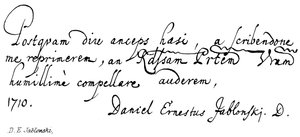 Postquam diu anceps hasi, a scribendone
me reprimerem, an Ralsam Prtem Vram
humillimè compellare auderem,
1710.
Daniel Ernestus Jablonski. D.
D. E. Jablonski.